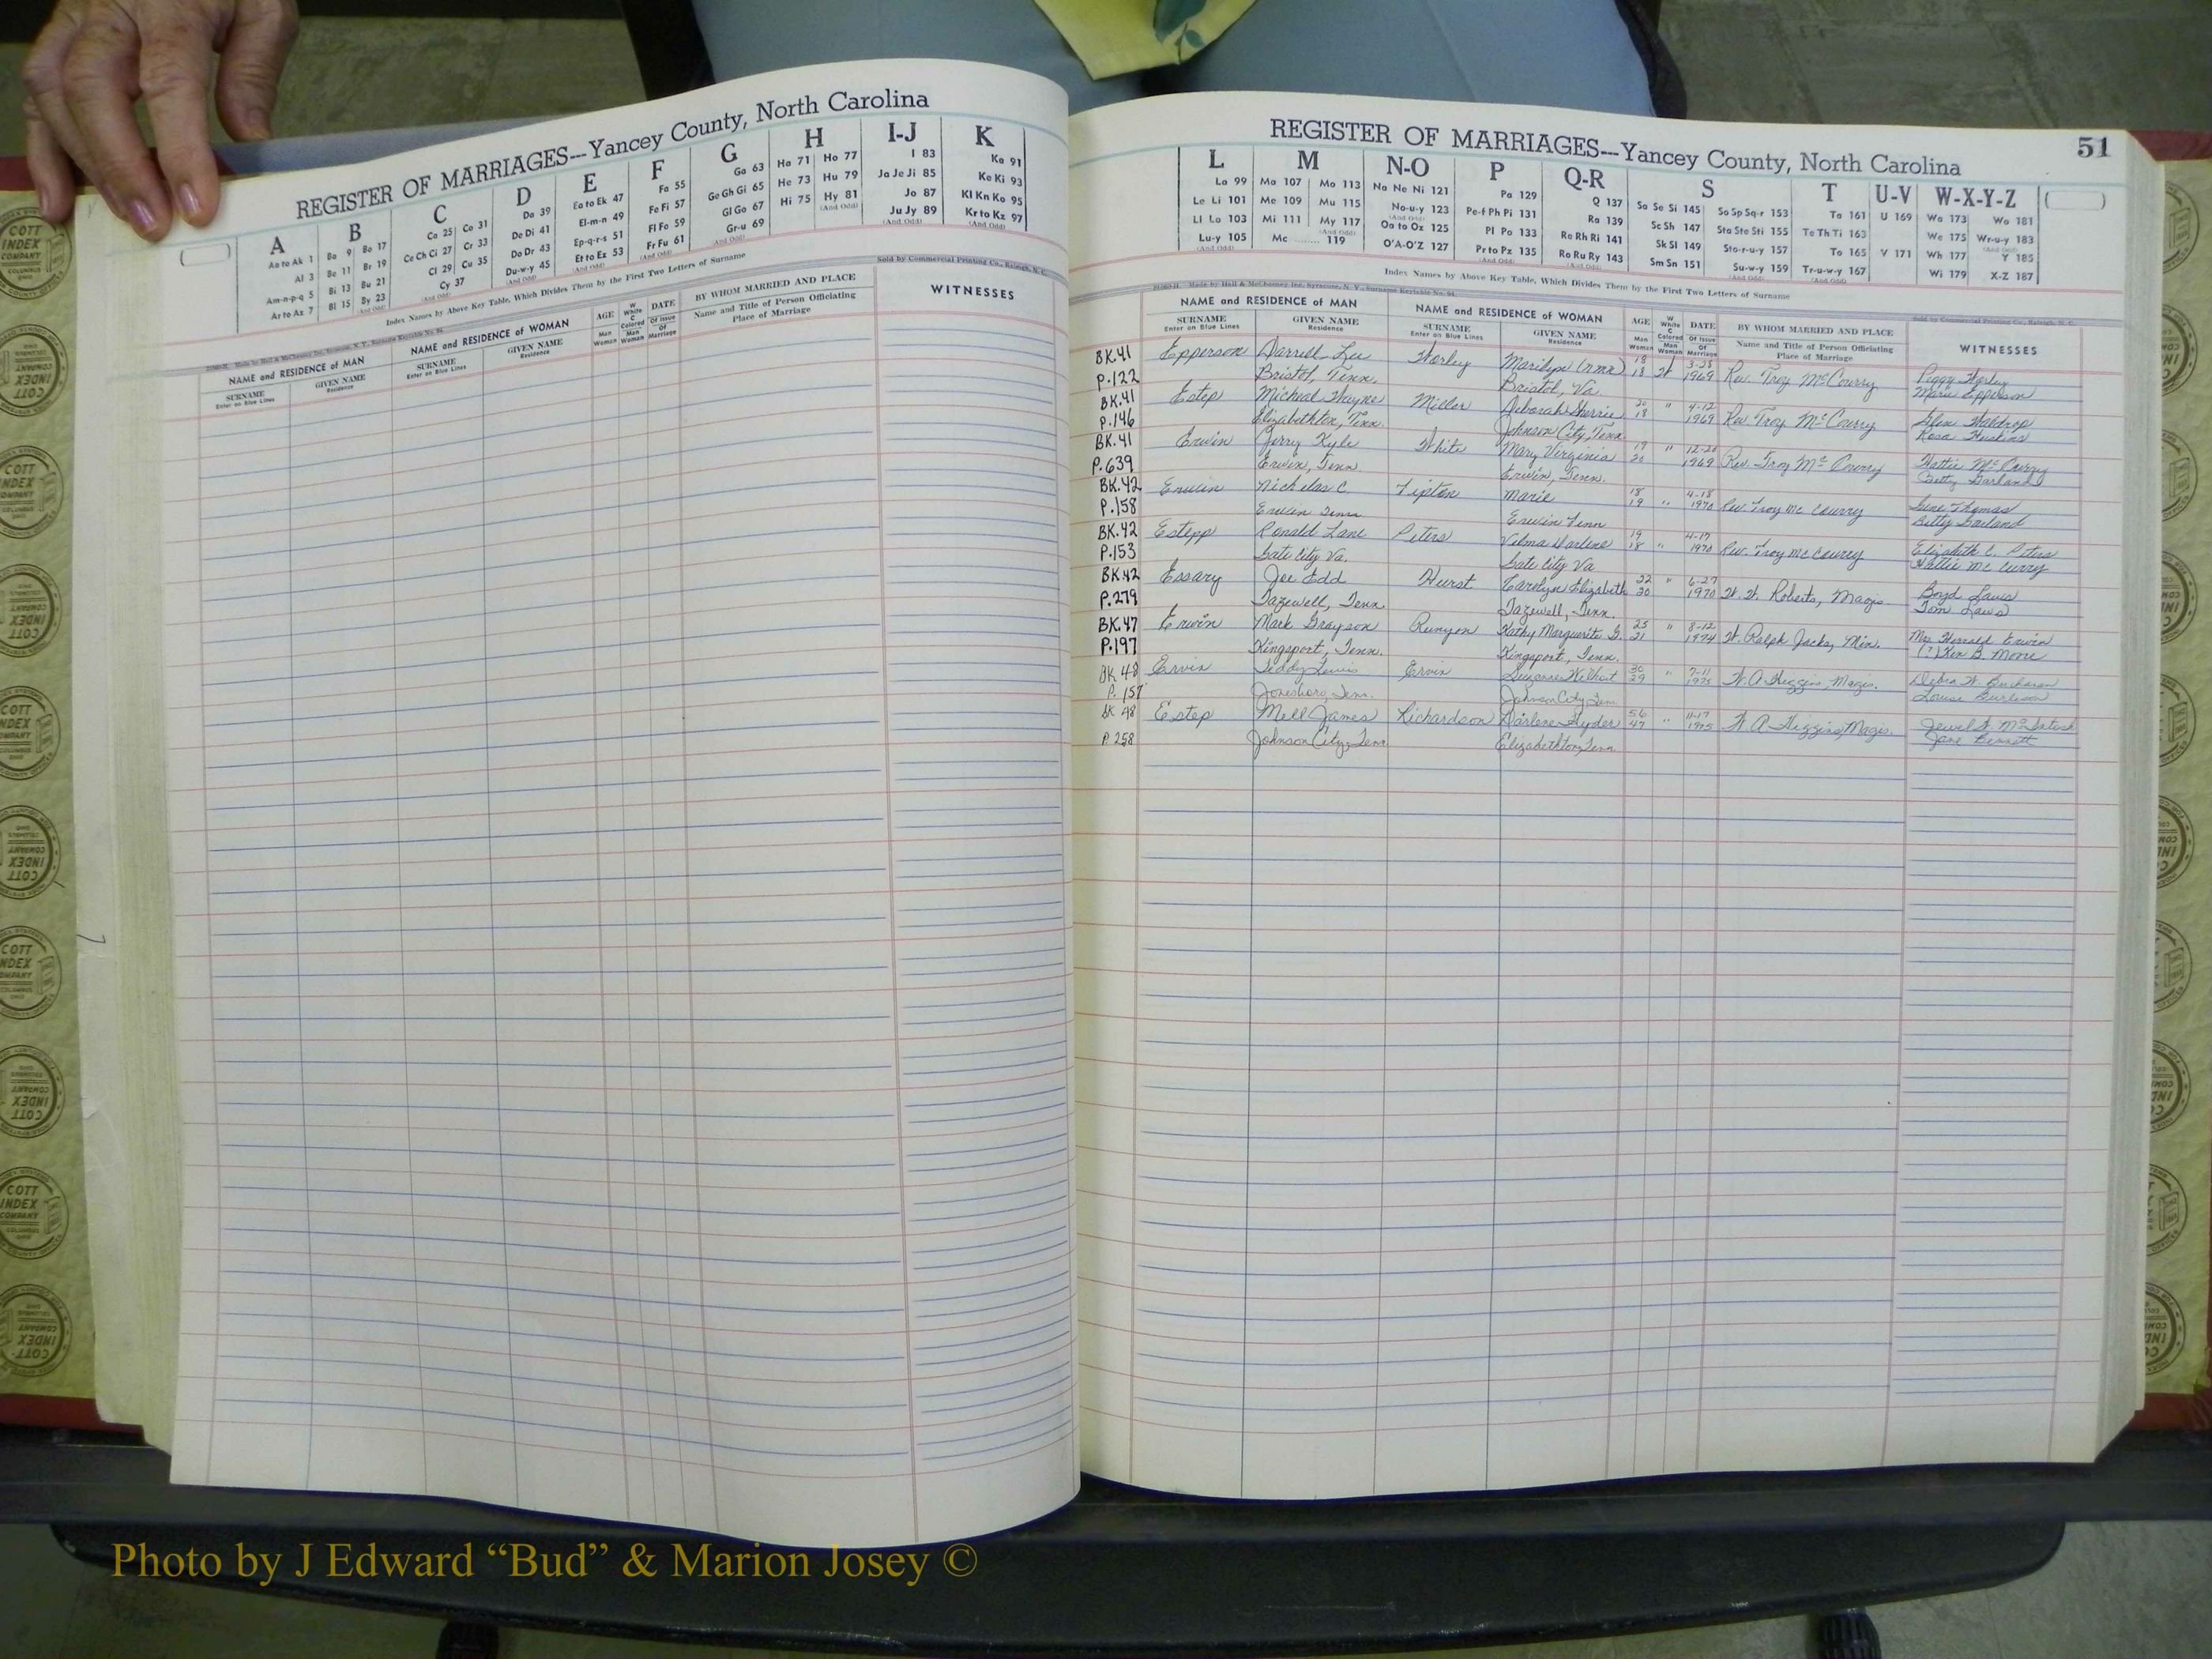 REGISTER OF MARRIAGES---Yancey County, North Carolina
A B C D E F G H I-J K
Aa to Ak 1
Al 3
Am-n-p-q 5
Ar to Az 7
Ba 9 Bo 17
Be 11 Br 19
Bi 13 Bu 21
Bl 15 By 23
(And Odd)
Ca 25 Co 31
Ce Ch Ci 27 Cr 33
Cl 29 Cu 35
(And Odd) Cy 37
Da 39
De Di 41
Do Dr 43
Du-w-y 45
(And Odd)
Ea to Ek 47
El-m-n 49
Ep-q-r-s 51
Et to Ez 53
(And Odd)
Fa 55
Fe Fi 57
Fl Fo 59
Fr Fu 61
(And Odd)
Ga 63
Ge Gh Gi 65
Gl Go 67
Gr-u 69
(And Odd)
Ha 71 Ho 77
He 73 Hu 79
Hi 75 Hy 81
(And Odd)
I 83
Ja Je Ji 85
Jo 87
Ju Jy 89
(And Odd)
Ka 91
Ke Ki 93
Kl Kn Ko 95
Kr to Kz 97
(And Odd)
Index Names by Above Key Table, Which Divides Them by the First Two Letters of Surname
Sold by Commercial Printing Co., Raleigh, N. C.
NAME and RESIDENCE of MAN
SURNAME
Enter on Blue Lines
GIVEN NAME
Residence
NAME and RESIDENCE of WOMAN
SURNAME
Enter on Blue Lines
GIVEN NAME
Residence
AGE
Man
Woman
W
White
C
Colored
Man
Woman
DATE
Of Issue
Of
Marriage
BY WHOM MARRIED AND PLACE
Name and Title of Person Officiating
Place of Marriage
WITNESSES
REGISTER OF MARRIAGES---Yancey County, North Carolina
51
L M N-O P Q-R S T U-V W-X-Y-Z
La 99
Le Li 101
Ll Lo 103
Lu-y 105
(And Odd)
Ma 107 Mo 113
Me 109 Mu 115
Mi 111 My 117
(And Odd)
Mc ........ 119
Na Ne Ni 121
No-u-y 123
(And Odd)
Oa to Ox 125
O'A-O'Z 127
Pa 129
Pe-f Ph Pi 131
Pl Po 133
Pr to Pz 135
(And Odd)
Q 137
Ra 139
Re Rh Ri 141
Ro Ru Ry 143
(And Odd)
Sa Se Si 145 So Sp Sq-r 153
Sc Sh 147 Sta Ste Sti 155
Sk Sl 149 Sto-r-u-y 157
Sm Sn 151 Su-w-y 159
(And Odd)
Ta 161
Te Th Ti 163
To 165
Tr-u-w-y 167
(And Odd)
U 169
V 171
Wa 173 Wo 181
We 175 Wr-u-y 183
(And Odd)
Wh 177 Y 185
Wi 179 X-Z 187
Index Names by Above Key Table, Which Divides Them by the First Two Letters of Surname
Sold by Commercial Printing Co., Raleigh, N. C.
NAME and RESIDENCE of MAN
SURNAME
Enter on Blue Lines
GIVEN NAME
Residence
NAME and RESIDENCE of WOMAN
SURNAME
Enter on Blue Lines
GIVEN NAME
Residence
AGE
Man
Woman
W
White
C
Colored
Man
Woman
DATE
Of Issue
Of
Marriage
BY WHOM MARRIED AND PLACE
Name and Title of Person Officiating
Place of Marriage
WITNESSES
BK.41 Epperson Darrell Lee Horley Marilyn (nmn) 18 3-28 Peggy Horley
P.122 Bristol, Tenn. Bristol, Va. 18 W 1969 Rev. Troy McCourry Marie Epperson
BK.41 Estep Micheal Wayne Miller Deborah Sherrie 20 " 4-12 Glen Waldrop
P.146 Elizabethton, Tenn. Johnson City, Tenn. 18 1969 Rev Troy McCourry Rosa Huskins
BK.41 Erwin Jerry Kyle White Mary Virginia 19 " 12-20 Hattie McCurry
P.639 Erwin, Tenn. Erwin, Tenn. 20 1969 Rev. Troy McCourry Betty Garland
BK.42 Erwin Nicholas C. Tipton Marie 18 4-18 June Thomas
P.158 Erwin Tenn Erwin Tenn 19 " 1970 Rev. Troy McCourry Betty Garland
BK.42 Estepp Ronald Lane Peters Velma Darlene 19 4-17 Elizabeth C. Peters
P.153 Gate City Va. Gate City Va 18 " 1970 Rev. Troy McCourry Hattie McCurry
BK.42 Essary Joe Edd Hurst Carolyn Elizabeth 22 " 6-27 Boyd Laws
P.279 Tazewell, Tenn. Tazewell, Tenn. 20 1970 W. W. Roberts, Magis. Tom Laws
BK.47 Erwin Mark Grayson Runyon Kathy Marguerite G. 25 " 8-12 Mrs Harrold Erwin
P.197 Kingsport, Tenn. Kingsport, Tenn. 21 1974 W. Ralph Jacks, Min. (?) Ken B. Moore
BK 48 Ervin Teddy Lewis Ervin Suzanne Wilhoit 30 " 7-11 Debra W. Buchanan
P. 157 Jonesboro, Tenn. Johnson City, Tenn 29 1975 W.A. Higgins, Magis. Louise Burleson
BK 48 Estep Mell James Richardson Darlene Hyder 56 " 11-17 Jewel McIntosh
P. 258 Johnson City, Tenn Elizabethton, Tenn. 47 1975 W. A. Higgins, Magis. Jane Bennett
COTT
INDEX
COMPANY
COLUMBUS
OHIO
Photo by J Edward “Bud” & Marion Josey ©